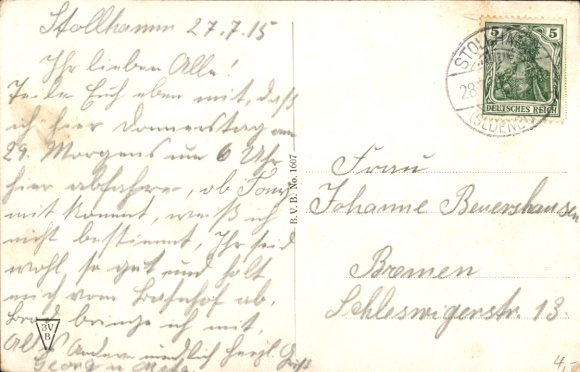 Stollhamm 27.7.15
Ihr lieben Alle!
Teile Euch eben mit, daß
ich hier Donnerstag am
29. Morgens um 6 Uhr
hier abfahre, ob
mit kommt, weiß ich
nicht bestimmt, Ihr seid
wohl so gut und holt
mich vom Bahnhof ab,
bringe ich mit,
Alles Andere mündlich herzl. Gruß
Georg u.
B.V.B. No. 1607
BV
B
5 5
DEUTSCHES REICH
STOLLHAMM
28
(OLDENB)
Frau
Johanne Beuershausen
Bremen
Schleswigerstr. 13.
4,-